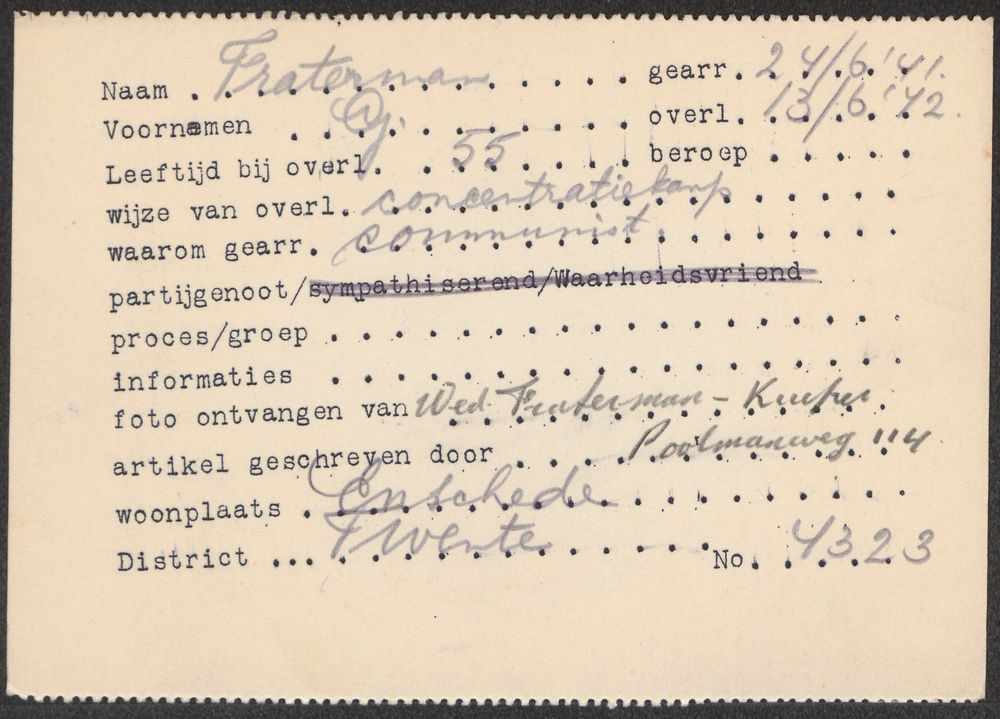 Naam . Fraterman . . . . . gearr. 24/6 '41.
Voornamen . . Gj. . . . . . overl. 13/6 '42.
Leeftijd bij overl. . 55 . . . . beroep . . . . .
wijze van overl. concentratiekamp . . . . .
waarom gearr. communist. . . . . . .
partijgenoot/sympathiserend/Waarheidsvriend
proces/groep . . . . . . . . . . . . . . .
informaties . . . . . . . . . . . . . . .
foto ontvangen van Wed. Fraterman - Kuiper.
artikel geschreven door . . . . 114
woonplaats . Enschede . . . . . . .
District ... Twente . . . . . No. 4323